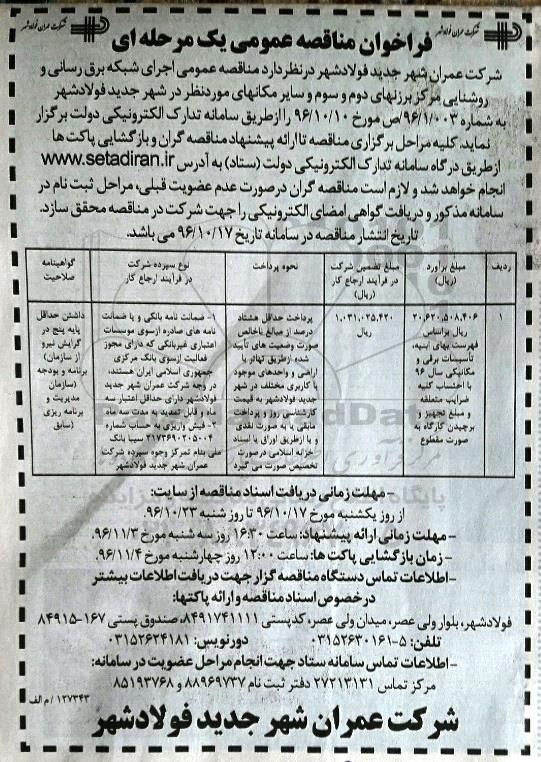 شرکت عمران فولادشهر
فراخوان مناقصه عمومی یک مرحله ای
شرکت عمران فولادشهر
شرکت عمران شهر جدید فولادشهر درنظر دارد مناقصه عمومی اجرای شبکه برق رسانی و
روشنایی مرکز برزنهای دوم و سوم و سایر مکانهای موردنظر در شهر جدید فولادشهر
به شماره ۹۶/۱/۰۰۳/ص مورخ ۹۶/۱۰/۱۰ را ازطریق سامانه تدارک الکترونیکی دولت برگزار
نماید. کلیه مراحل برگزاری مناقصه تا ارائه پیشنهاد مناقصه گران و بازگشایی پاکت ها
ازطریق درگاه سامانه تدارک الکترونیکی دولت (ستاد) به آدرس www.setadiran.ir
انجام خواهد شد و لازم است مناقصه گران درصورت عدم عضویت قبلی، مراحل ثبت نام در
سامانه مذکور و دریافت گواهی امضای الکترونیکی را جهت شرکت در مناقصه محقق سازد.
تاریخ انتشار مناقصه در سامانه تاریخ ۹۶/۱۰/۱۷ می باشد.
ردیف
مبلغ برآورد
(ریال)
مبلغ تضمین شرکت
در فرآیند ارجاع کار
(ریال)
نحوه پرداخت
نوع سپرده شرکت
در فرآیند ارجاع کار
گواهینامه
صلاحیت
۱
۲۰,۶۲۰,۵۰۸,۴۰۶
ریال براساس
فهرست بهای ابنیه،
تأسیسات برقی و
مکانیکی سال ۹۶
با احتساب کلیه
ضرایب متعلقه
و مبلغ تجهیز و
برچیدن کارگاه به
صورت مقطوع
۱,۰۳۱,۰۲۵,۴۲۰
ریال
پرداخت حداقل هشتاد
درصد از مبالغ ناخالص
صورت وضعیت های تأیید
شده ازطریق تهاتر با
اراضی و واحدهای موجود
با کاربری مختلف در شهر
جدید فولادشهر به قیمت
کارشناسی روز و پرداخت
مابقی یا به صورت نقدی
و یا ازطریق اوراق یا اسناد
خزانه اسلامی درصورت
تخصیص صورت می گیرد
۱- ضمانت نامه بانکی و یا ضمانت
نامه های صادره ازسوی موسسات
اعتباری غیربانکی که دارای مجوز
فعالیت ازسوی بانک مرکزی
جمهوری اسلامی ایران هستند،
در وجه شرکت عمران شهر جدید
فولادشهر دارای حداقل اعتبار سه
ماه و قابل تمدید به مدت سه ماه
۲- فیش واریزی به حساب شماره
۲۱۷۳۶۹۰۲۰۵۰۰۴ سیبا بانک
ملی بنام تمرکز وجوه سپرده شرکت
عمران شهر جدید فولادشهر
داشتن حداقل
پایه پنج در
گرایش نیرو
از سازمان
برنامه و بودجه
(سازمان
مدیریت و
برنامه ریزی
سابق)
- مهلت زمانی دریافت اسناد مناقصه از سایت:
از روز یکشنبه مورخ ۹۶/۱۰/۱۷ تا روز شنبه ۹۶/۱۰/۲۳
- مهلت زمانی ارائه پیشنهاد: ساعت ۱۶:۳۰ روز سه شنبه مورخ ۹۶/۱۱/۳
- زمان بازگشایی پاکت ها: ساعت ۱۲:۰۰ روز چهارشنبه مورخ ۹۶/۱۱/۴
- اطلاعات تماس دستگاه مناقصه گزار جهت دریافت اطلاعات بیشتر
درخصوص اسناد مناقصه و ارائه پاکتها:
فولادشهر، بلوار ولی عصر، میدان ولی عصر، کدپستی ۸۴۹۱۷۴۱۱۱۱، صندوق پستی ۱۶۷-۸۴۹۱۵
تلفن: ۵-۰۳۱۵۲۶۳۰۱۶۱ دورنویس: ۰۳۱۵۲۶۲۴۱۸۱
- اطلاعات تماس سامانه ستاد جهت انجام مراحل عضویت در سامانه:
مرکز تماس ۲۷۲۱۳۱۳۱ دفتر ثبت نام ۸۸۹۶۹۷۳۷ و ۸۵۱۹۳۷۶۸
۱۲۷۳۴۳ / م الف
شرکت عمران شهر جدید فولادشهر